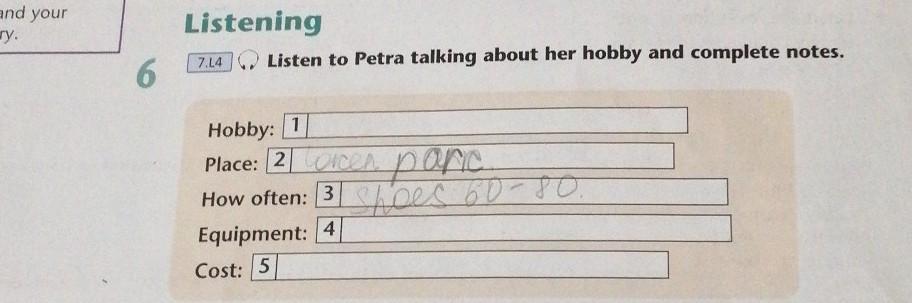 and your
ry.
Listening
6 7.L4 Listen to Petra talking about her hobby and complete notes.
Hobby: 1
Place: 2 parc
How often: 3 Shoes 60-80.
Equipment: 4
Cost: 5